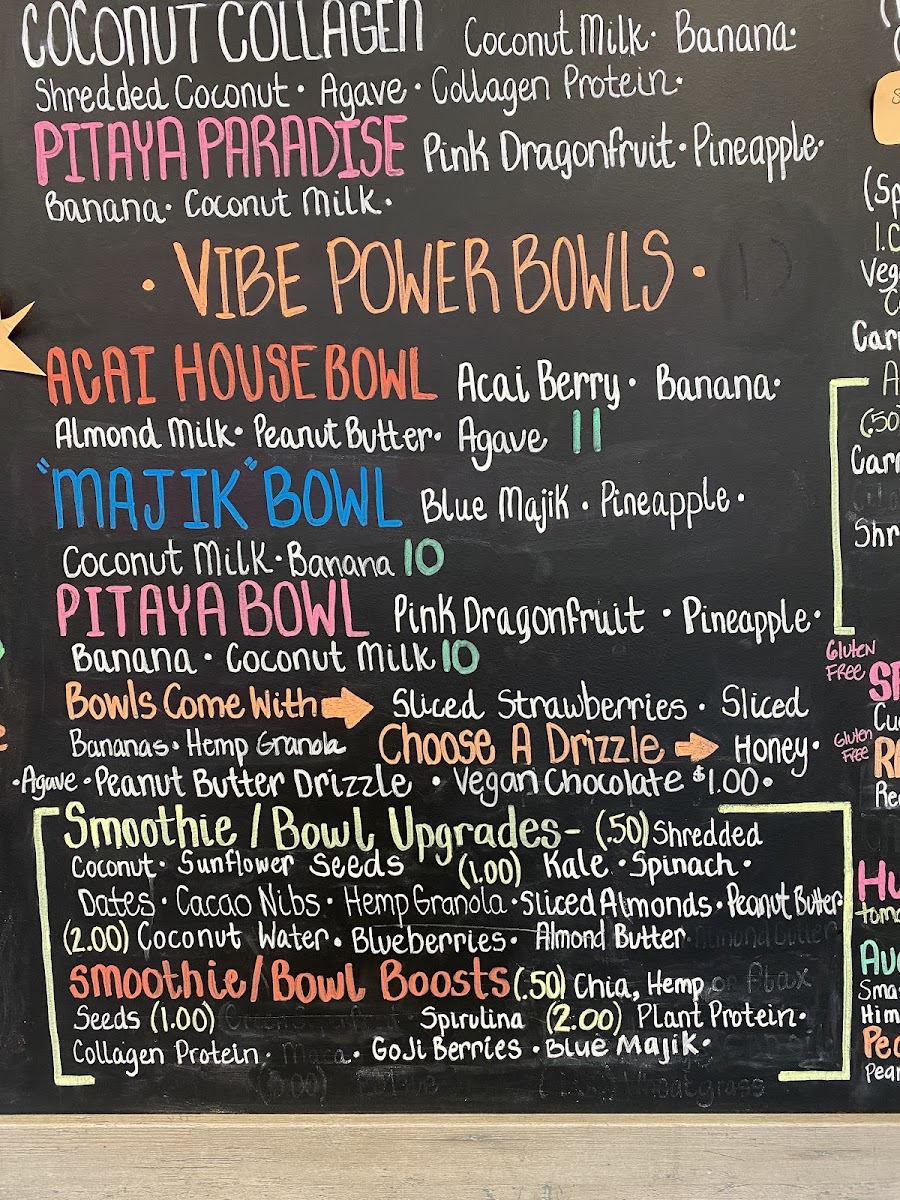 COCONUT COLLAGEN Coconut Milk· Banana·
Shredded Coconut· Agave· Collagen Protein·
PITAYA PARADISE Pink Dragonfruit·Pineapple·
Banana· Coconut Milk·
·VIBE POWER BOWLS·
ACAI HOUSE BOWL Acai Berry· Banana·
Almond Milk· Peanut Butter· Agave 11
"MAJIK" BOWL Blue Majik· Pineapple·
Coconut Milk·Banana 10
PITAYA BOWL Pink Dragonfruit· Pineapple·
Banana· Coconut Milk 10
Bowls Come With Sliced Strawberries· Sliced
Bananas· Hemp Granola Choose A Drizzle Honey·
·Agave·Peanut Butter Drizzle ·Vegan Chocolate $1.00·
Smoothie/Bowl Upgrades- (.50) Shredded
Coconut· Sunflower Seeds (1.00) Kale·Spinach·
Dates·Cacao Nibs·Hemp Granola·Sliced Almonds·Peanut Butter
(2.00) Coconut Water· Blueberries· Almond Butter Almond Butter
smoothie/Bowl Boosts (.50) Chia, Hemp or flax
Seeds (1.00) Spirulina (2.00) Plant Protein·
Collagen Protein· Maca· GoJi Berries·Blue Majik·
Wheatgrass
(Sp
1.C
Veg
Car
A
(.50
Carr
Shr
Gluten
FREE
SP
Cu
Gluten
Free
Re
Hu
toma
Avo
Sma
Him
Pea
Pear